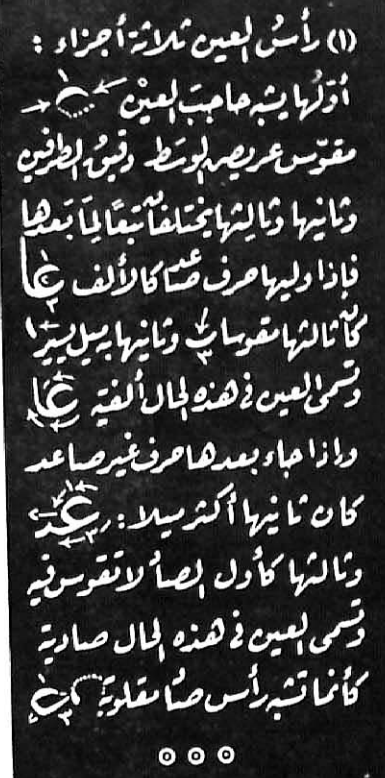 (١) رأسُ العين ثلاثة أجزاء :
أوّلُها يشبه حاجبَ العيْن
مقوّس عريض الوسَط دقيقُ الطرفين
وثانيها وثالثها يختلفان تبعًا لِمَا بَعدها
فإذا وليها حرف صاعد كالألف عا
كان ثالثها مقوسا وثانيها يميل يسيرا
وتسمى العين فى هذه الحال ألفيه عا
وإذا جاء بعدها حرف غير صاعد
كان ثانيها أكثر ميلا : عد
وثالثها كأول الصاد لا تقوس فيه
وتسمى العين فى هذه الحال صادية
كأنما تشبه رأس صاد مقلوبة